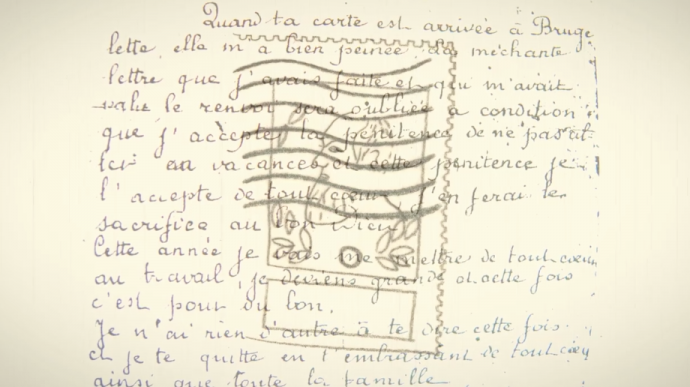 Quand ta carte est arrivée à Bruge
lette, elle m'a bien peinée. La méchante
lettre que j'avais faite et qui m'avait
value le renvoi sera oubliée à condition
que j'accepte la pénitence de ne pas
en vacances et cette pénitence je
l'accepte de tout cœur j'en ferai le
sacrifice au bon Dieu
Cette année je vais me mettre de tout cœur
au travail, je deviens grande et cette fois
c'est pour du bon.
Je n'ai rien d'autre à te dire cette fois
et je te quitte en t'embrassant de tout cœur
ainsi que toute la famille